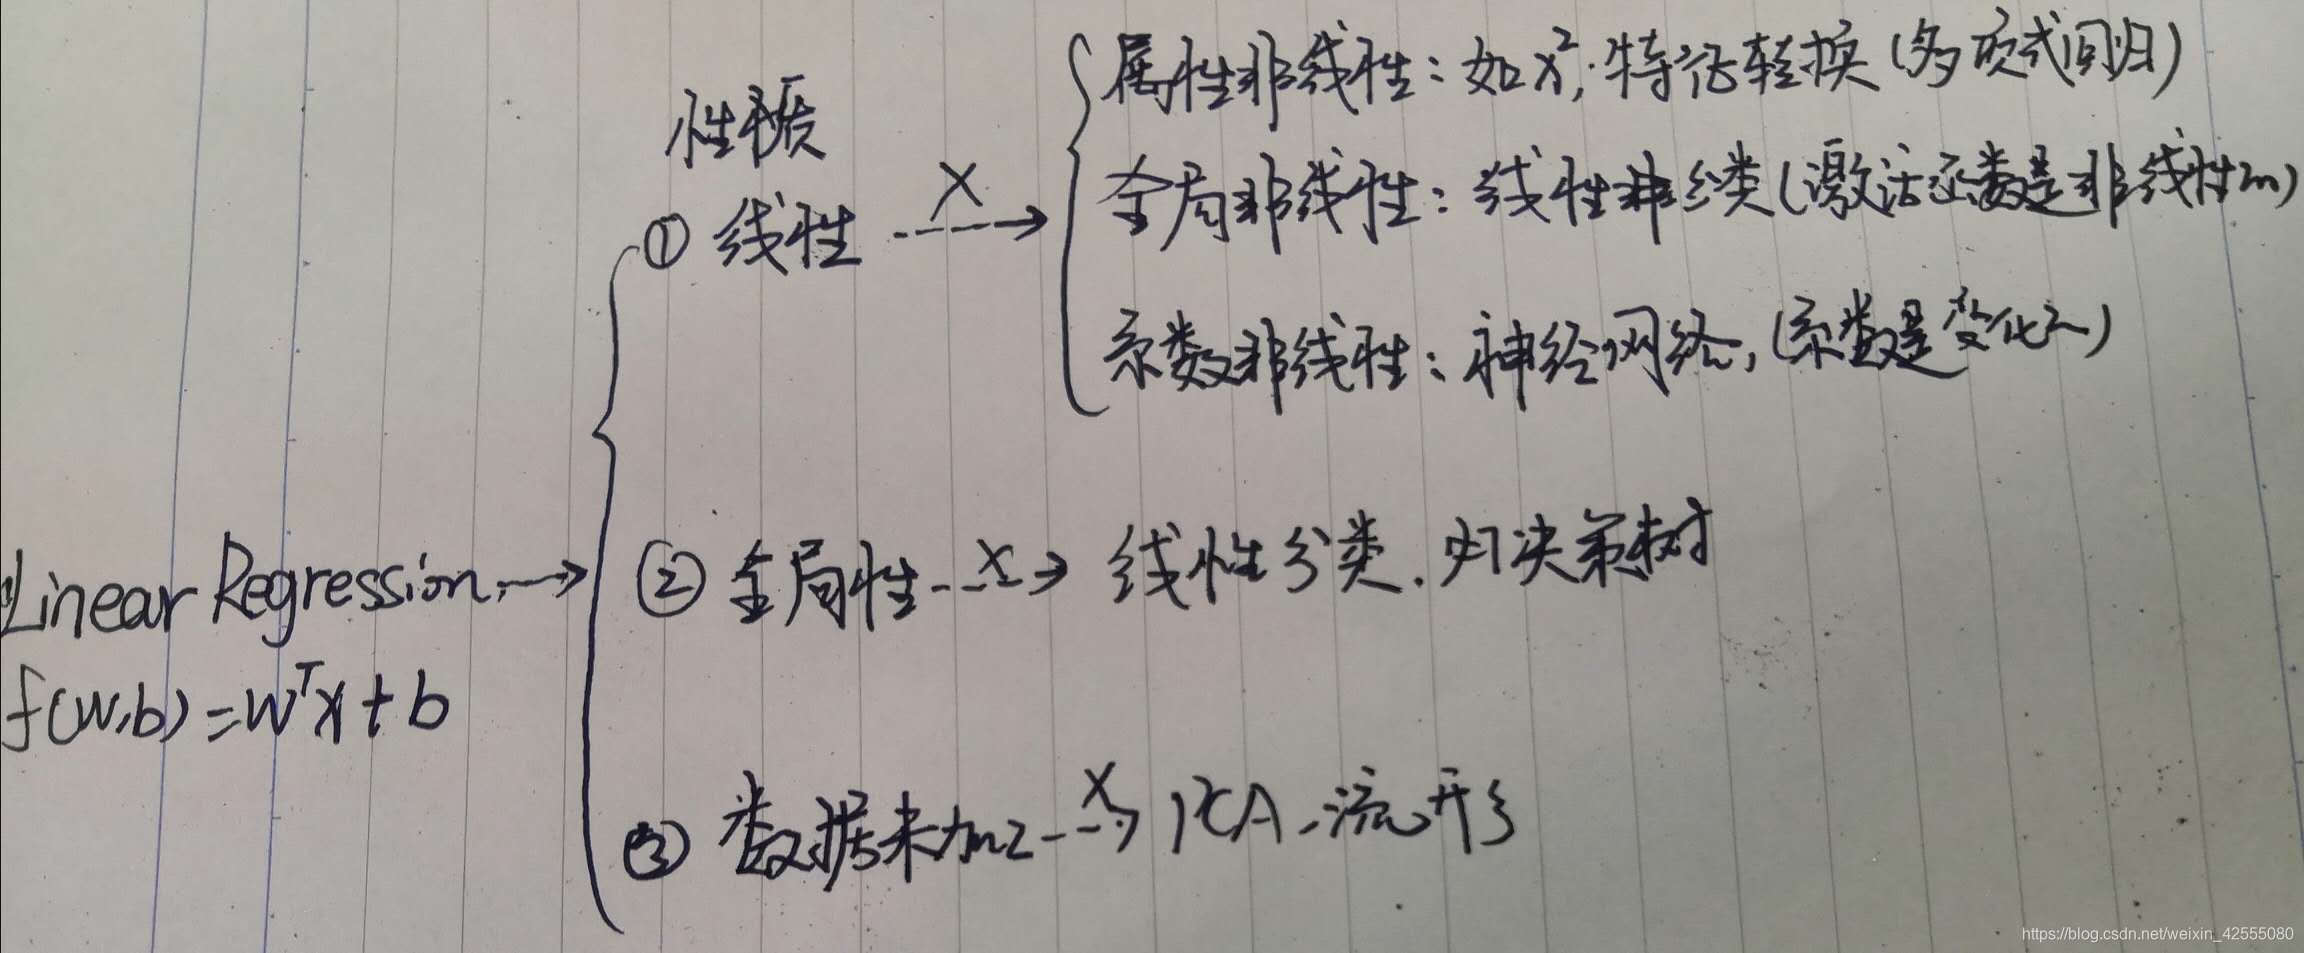 性质
① 线性 --X-->
属性非线性：如x²，特征转换（多项式回归）
全局非线性：线性分类（激活函数是非线性的）
系数非线性：神经网络，（系数是变化的）
② 全局性 --X--> 线性分类．决策树
③ 数据未加工 --X--> PCA，流形
Linear Regression →
f(w,b)=wᵀx+b
https://blog.csdn.net/weixin_42555080